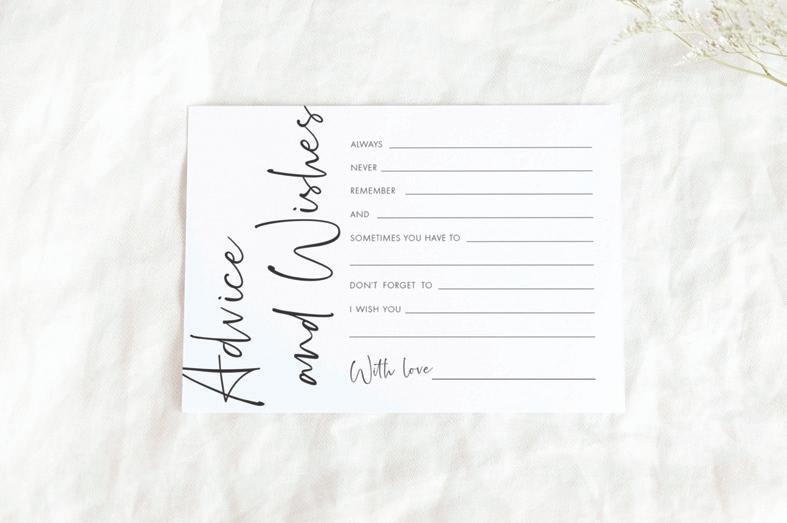 Advice
and Wishes
ALWAYS
NEVER
REMEMBER
AND
SOMETIMES YOU HAVE TO
DON'T FORGET TO
I WISH YOU
With love